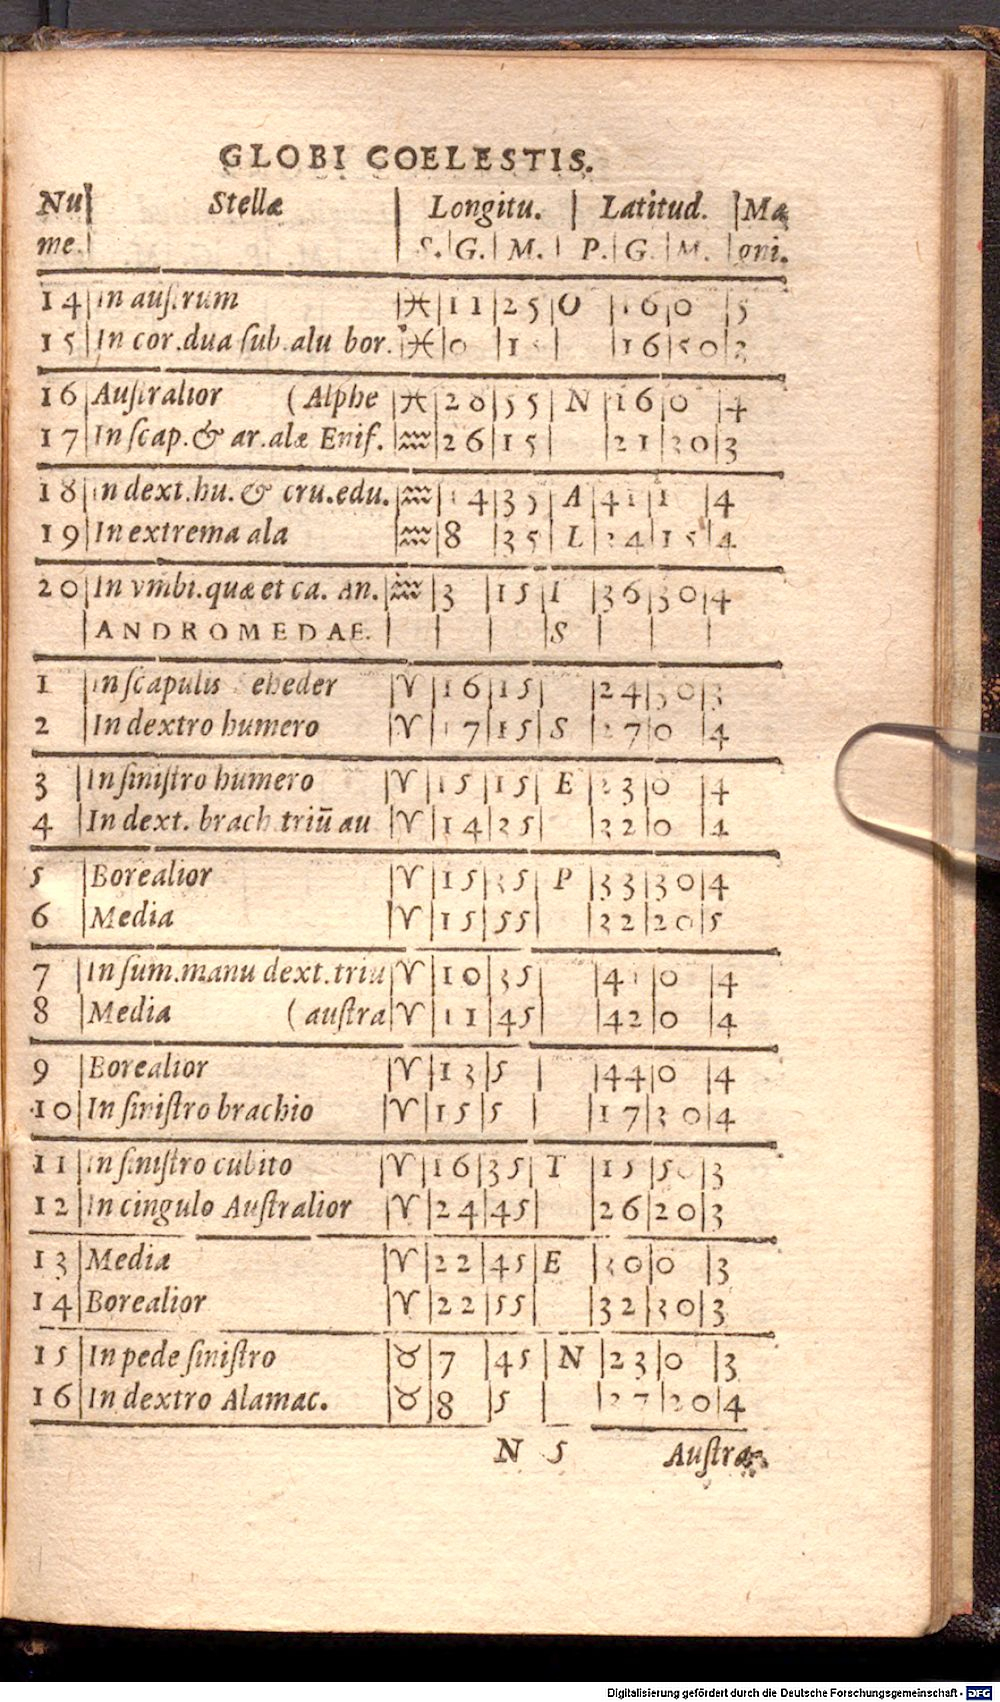 GLOBI COELESTIS.
Nu Stellæ Longitu. Latitud. Ma
me. S. G. M. P. G. M. gni.
14 In austrum ♓ 11 25 O 16 0 5
15 In cor.dua sub.alu bor. ♓ 0 16 50
16 Australior (Alphe ♓ 28 55 N 16 0 4
17 In scap.& ar.alæ Enif. ♒ 26 15 21 30 3
18 In dext.hu.& cru.edu. ♒ 14 35 A 41 1 4
19 In extrema ala ♒ 8 35 L 34 15 4
20 In vmbi.quæ et ca. an. ♒ 3 15 I 36 30 4
ANDROMEDAE. S
1 In scapulis eheder ♈ 16 15 24 30 3
2 In dextro humero ♈ 17 15 S 27 0 4
3 In sinistro humero ♈ 15 15 E 23 0 4
4 In dext. brach triū au ♈ 14 35 32 0 4
5 Borealior ♈ 15 35 P 33 30 4
6 Media ♈ 15 55 32 20 5
7 In sum.manu dext.triu ♈ 10 35 41 0 4
8 Media (austra ♈ 11 45 42 0 4
9 Borealior ♈ 13 5 44 0 4
10 In sinistro brachio ♈ 15 5 17 30 4
11 In sinistro cubito ♈ 16 35 T 15 50 3
12 In cingulo Australior ♈ 24 45 26 20 3
13 Media ♈ 22 45 E 30 0 3
14 Borealior ♈ 22 55 32 30 3
15 In pede sinistro ♉ 7 45 N 23 0 3
16 In dextro Alamac. ♉ 8 5 37 20 4
N 5 Austra
Digitalisierung gefördert durch die Deutsche Forschungsgemeinschaft - DFG